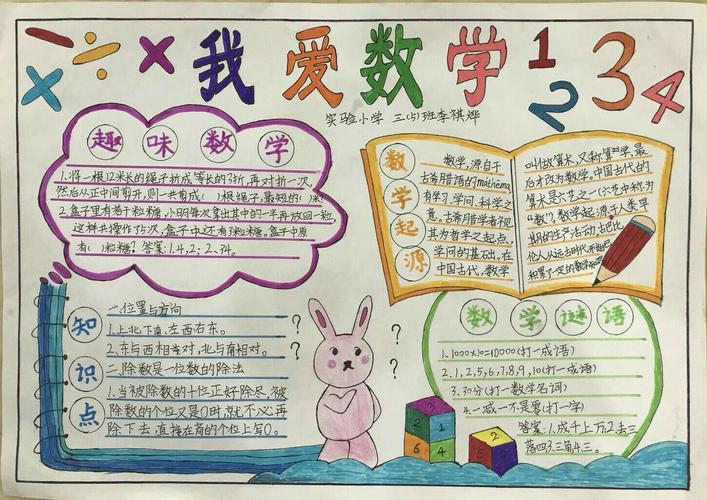 我爱数学
1 2 3 4
实验小学 三(5)班李祺烨
趣味数学
1.将一根12米长的绳子折成等长的3折,再对折一次,
然后从正中间剪开,则一共剪成( )根绳子,最短的( )米
2.盒子里有若干粒糖,小明每次拿出其中的一半再放回一粒,
这样共操作了5次,盒子中还有3粒糖。盒子中原
有( )粒糖? 答案:1.4,2; 2.34。
数学起源
数学,源自于
古希腊语的máthēma,
有学习、学问、科学之
意。古希腊学者视
其为哲学之起点,
学问的基础,在
中国古代,数学
叫做算术,又称算学,最
后才改为数学,中国古代的
算术是六艺之一(六艺中称为
“数”)。数学起源于人类早
期的生产活动,古巴比
伦人从远古时代开始已
积累了一定的数学
知识点
一.位置与方向
1.上北下南,左西右东。
2.东与西相对,北与南相对。
二.除数是一位数的除法
1.当被除数的十位正好除尽,被
除数的个位又是0时,就不必再
除下去,直接在商的个位上写0。
? ? ? ?
数学谜语
1.1000×10=10000(打一成语)
2.1,2,5,6,7,8,9,10(打一成语)
3.30分(打一数学名词)
4.一减一不是零(打一字)
答案:1.成千上万.2.丢三
落四.3.三角.4.三。
3
2 1
2 4 6
5